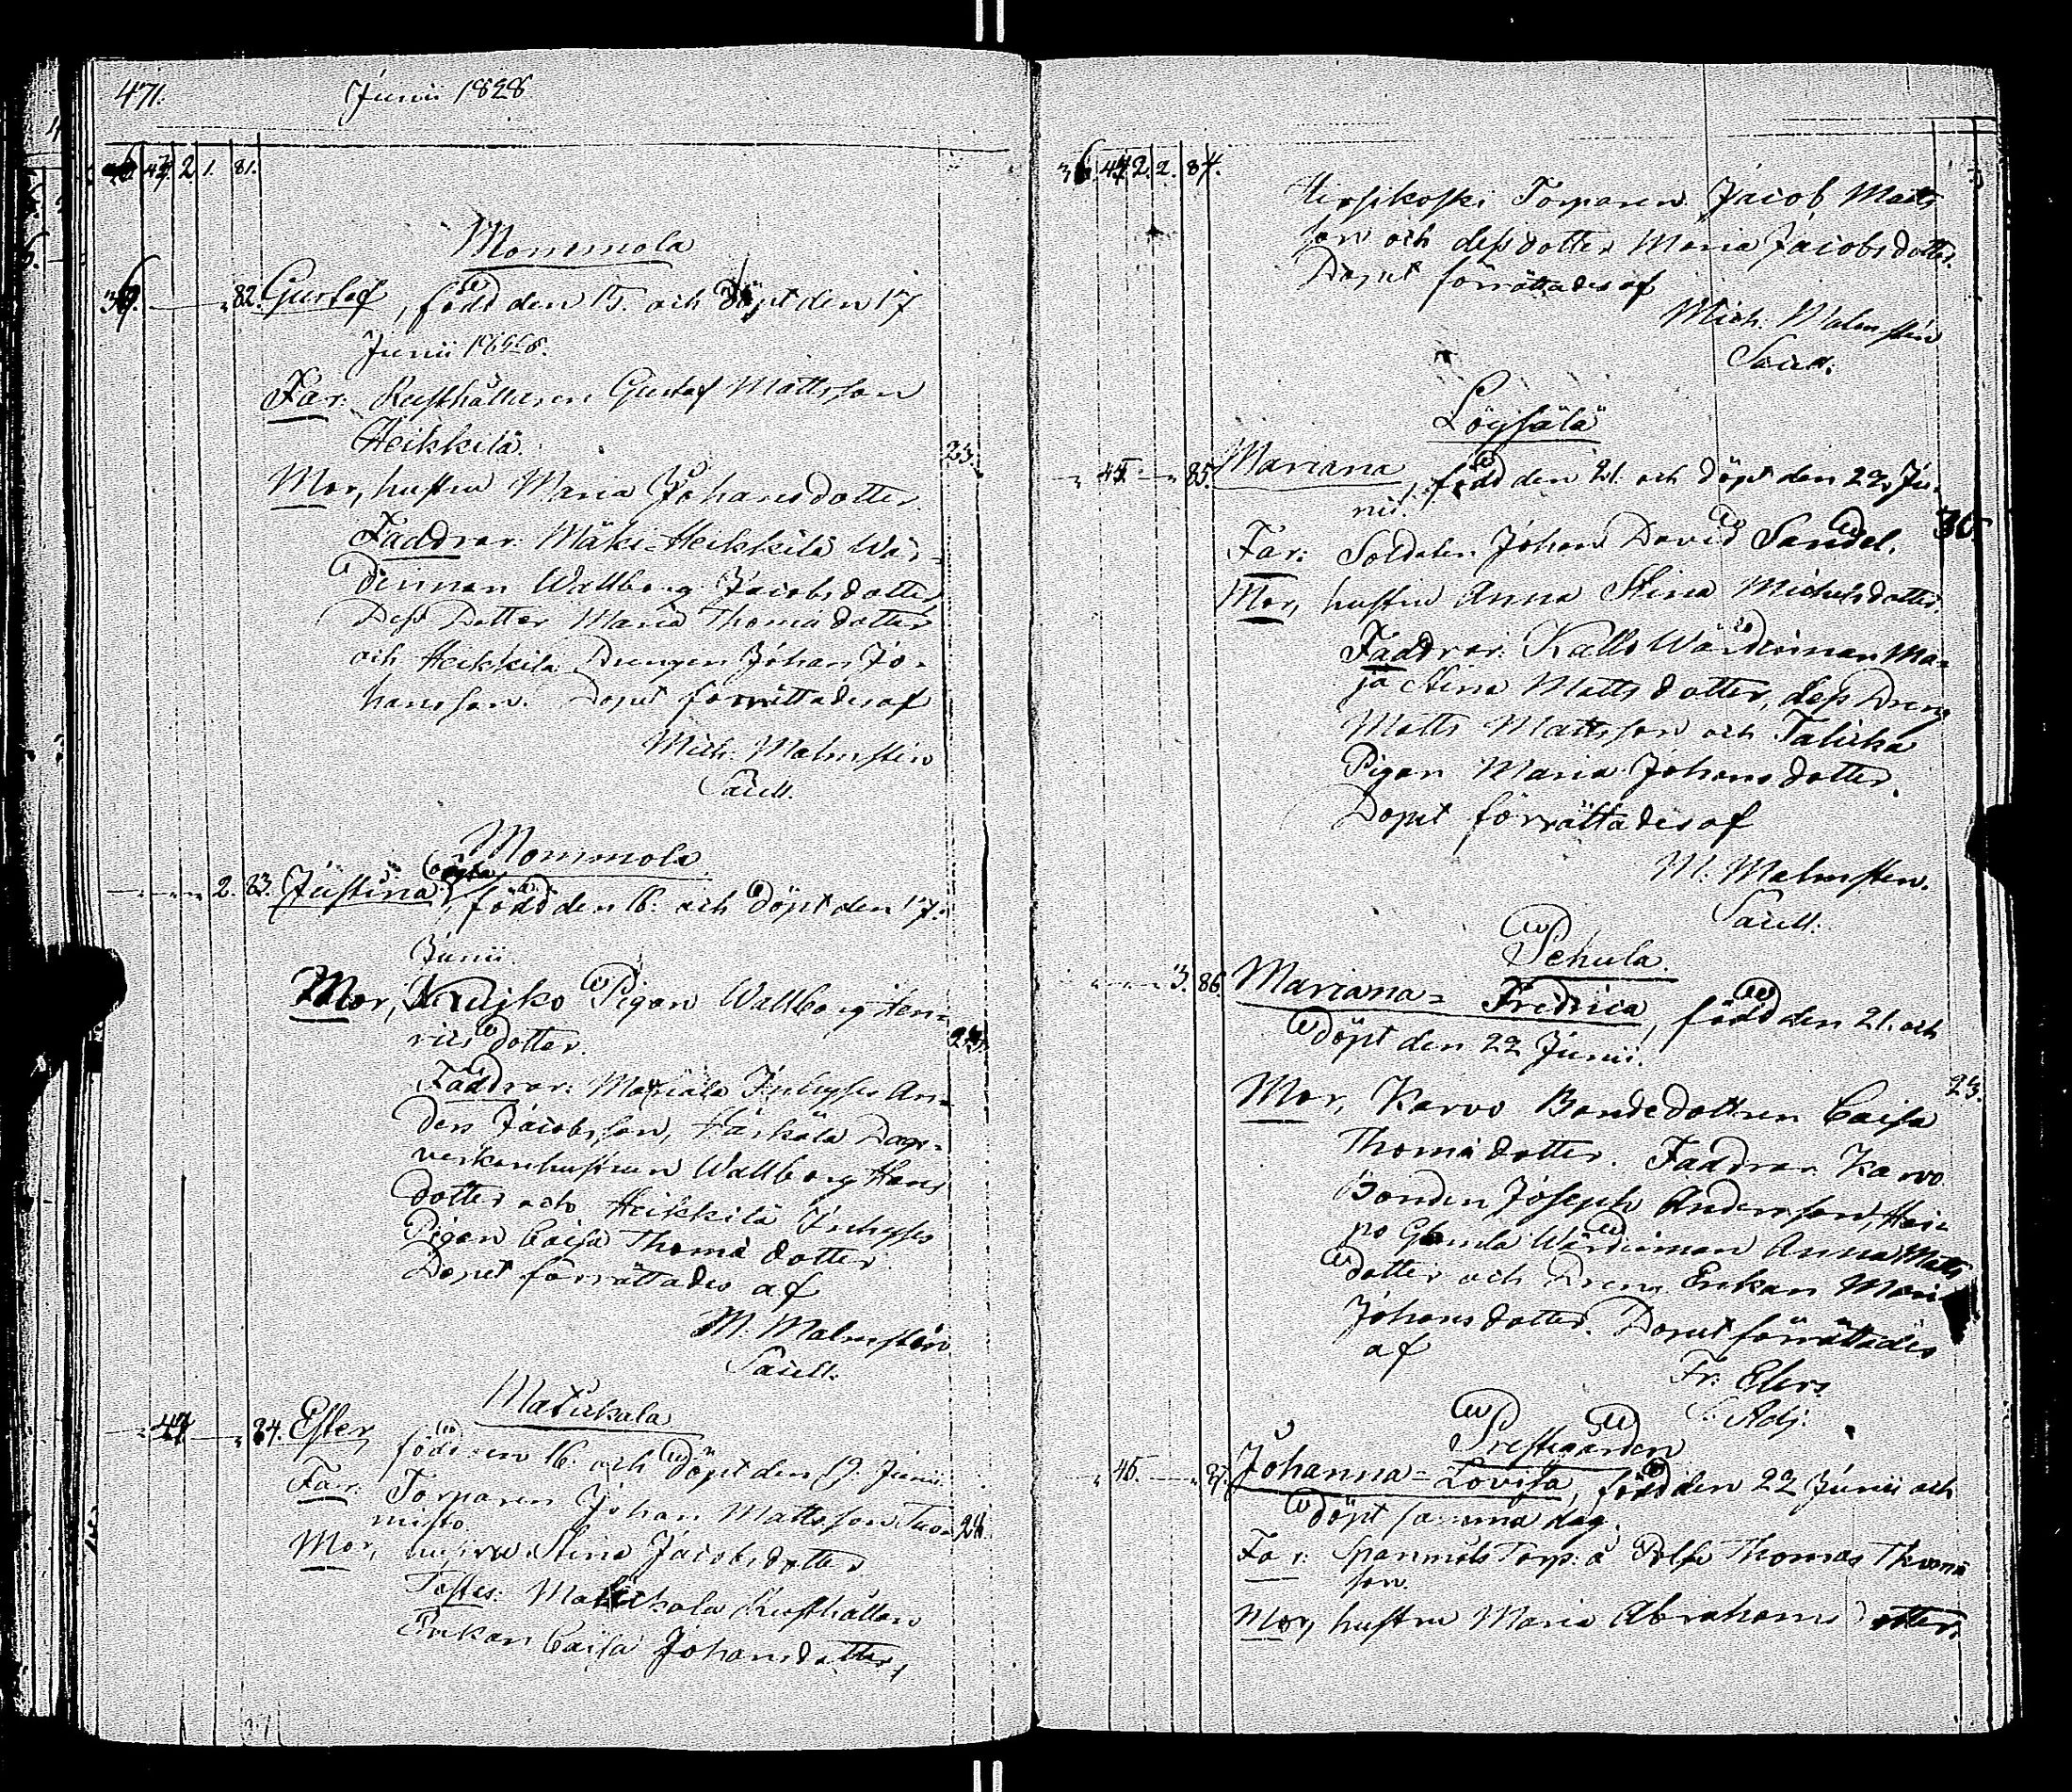 471.
Junii 1828
43. 2. 1. 81.
Mommola
82. Gustaf, född den 15. och döpt den 17
Junii 1828.
Far: Rusthållaren Gustaf Mattsson
Heikkilä.
23.
Mor, hustru Maria Johansdotter.
Faddrar: Mäki-Heikkilä Wär-
dinnan Wallborg Jacobsdotter
Dess Dotter Maria Thomædotter
och Heikkilä Drengen Johan Jo-
hansson. Dopet förrättades af
Mich. Malmstén
Sacell.
Mommola
2. 83. Justina, född den 16. och döpt den 17.
Junii.
Mor, Krujko Pigan Wallborg Hen-
rics dotter.
Faddrar: Inhyses An-
ders Jacobsson, Härkälä Dags-
verkarhustrun Wallborg Hans
dotter och Heikkilä Inhyses
Pigan Caisa Thomædotter.
Dopet förrättades af
M. Malmstén
Sacell.
Matickala
84. Ester, född den 16. och döpt den 19. Junii.
Far: Torparen Johan Mattsson Tuo-
misto.
Mor, hustru Stina Jacobsdotter
Testes: Matickala Rusthållare
Enkan Caisa Johansdotter,
2. 2. 84.
Hirsikoski Torparen Jacob Matts
son och dess dotter Maria Jacobsdotter.
Dopet förrättades af
Mich. Malmstén
Sacell.
Löysälä
85. Mariana, född den 21. och döpt den 22. Ju-
nii.
30.
Far: Soldaten Johan David Sandel.
Mor, hustru Anna Stina Michelsdotter.
Faddrar: Kallo Wärdinnan Ma-
ja Stina Mattsdotter, dess Dreng
Matts Mattsson och Talicka
Pigan Maria Johansdotter.
Dopet förrättades af
M. Malmsten.
Sacell.
Pehula
3. 86. Mariana-Fredrica, född den 21. och
döpt den 22 Junii.
23.
Mor, Karvo Bondedottren Caisa
Thomædotter. Faddrar Karvo
Bonden Joseph Andersson,
Wärdinnan Anna Matts
dotter och Enkan Maria
Johansdotter. Dopet förrättades
af
Fr. Elers
Adj.
Prestegården
45. 87. Johanna-Lovisa, född den 22 Junii och
döpt samma dag.
Far: Spanmåls Torp: å Thomas Thomæ
son.
Mor, hustru Maria Abrahamsdotter.